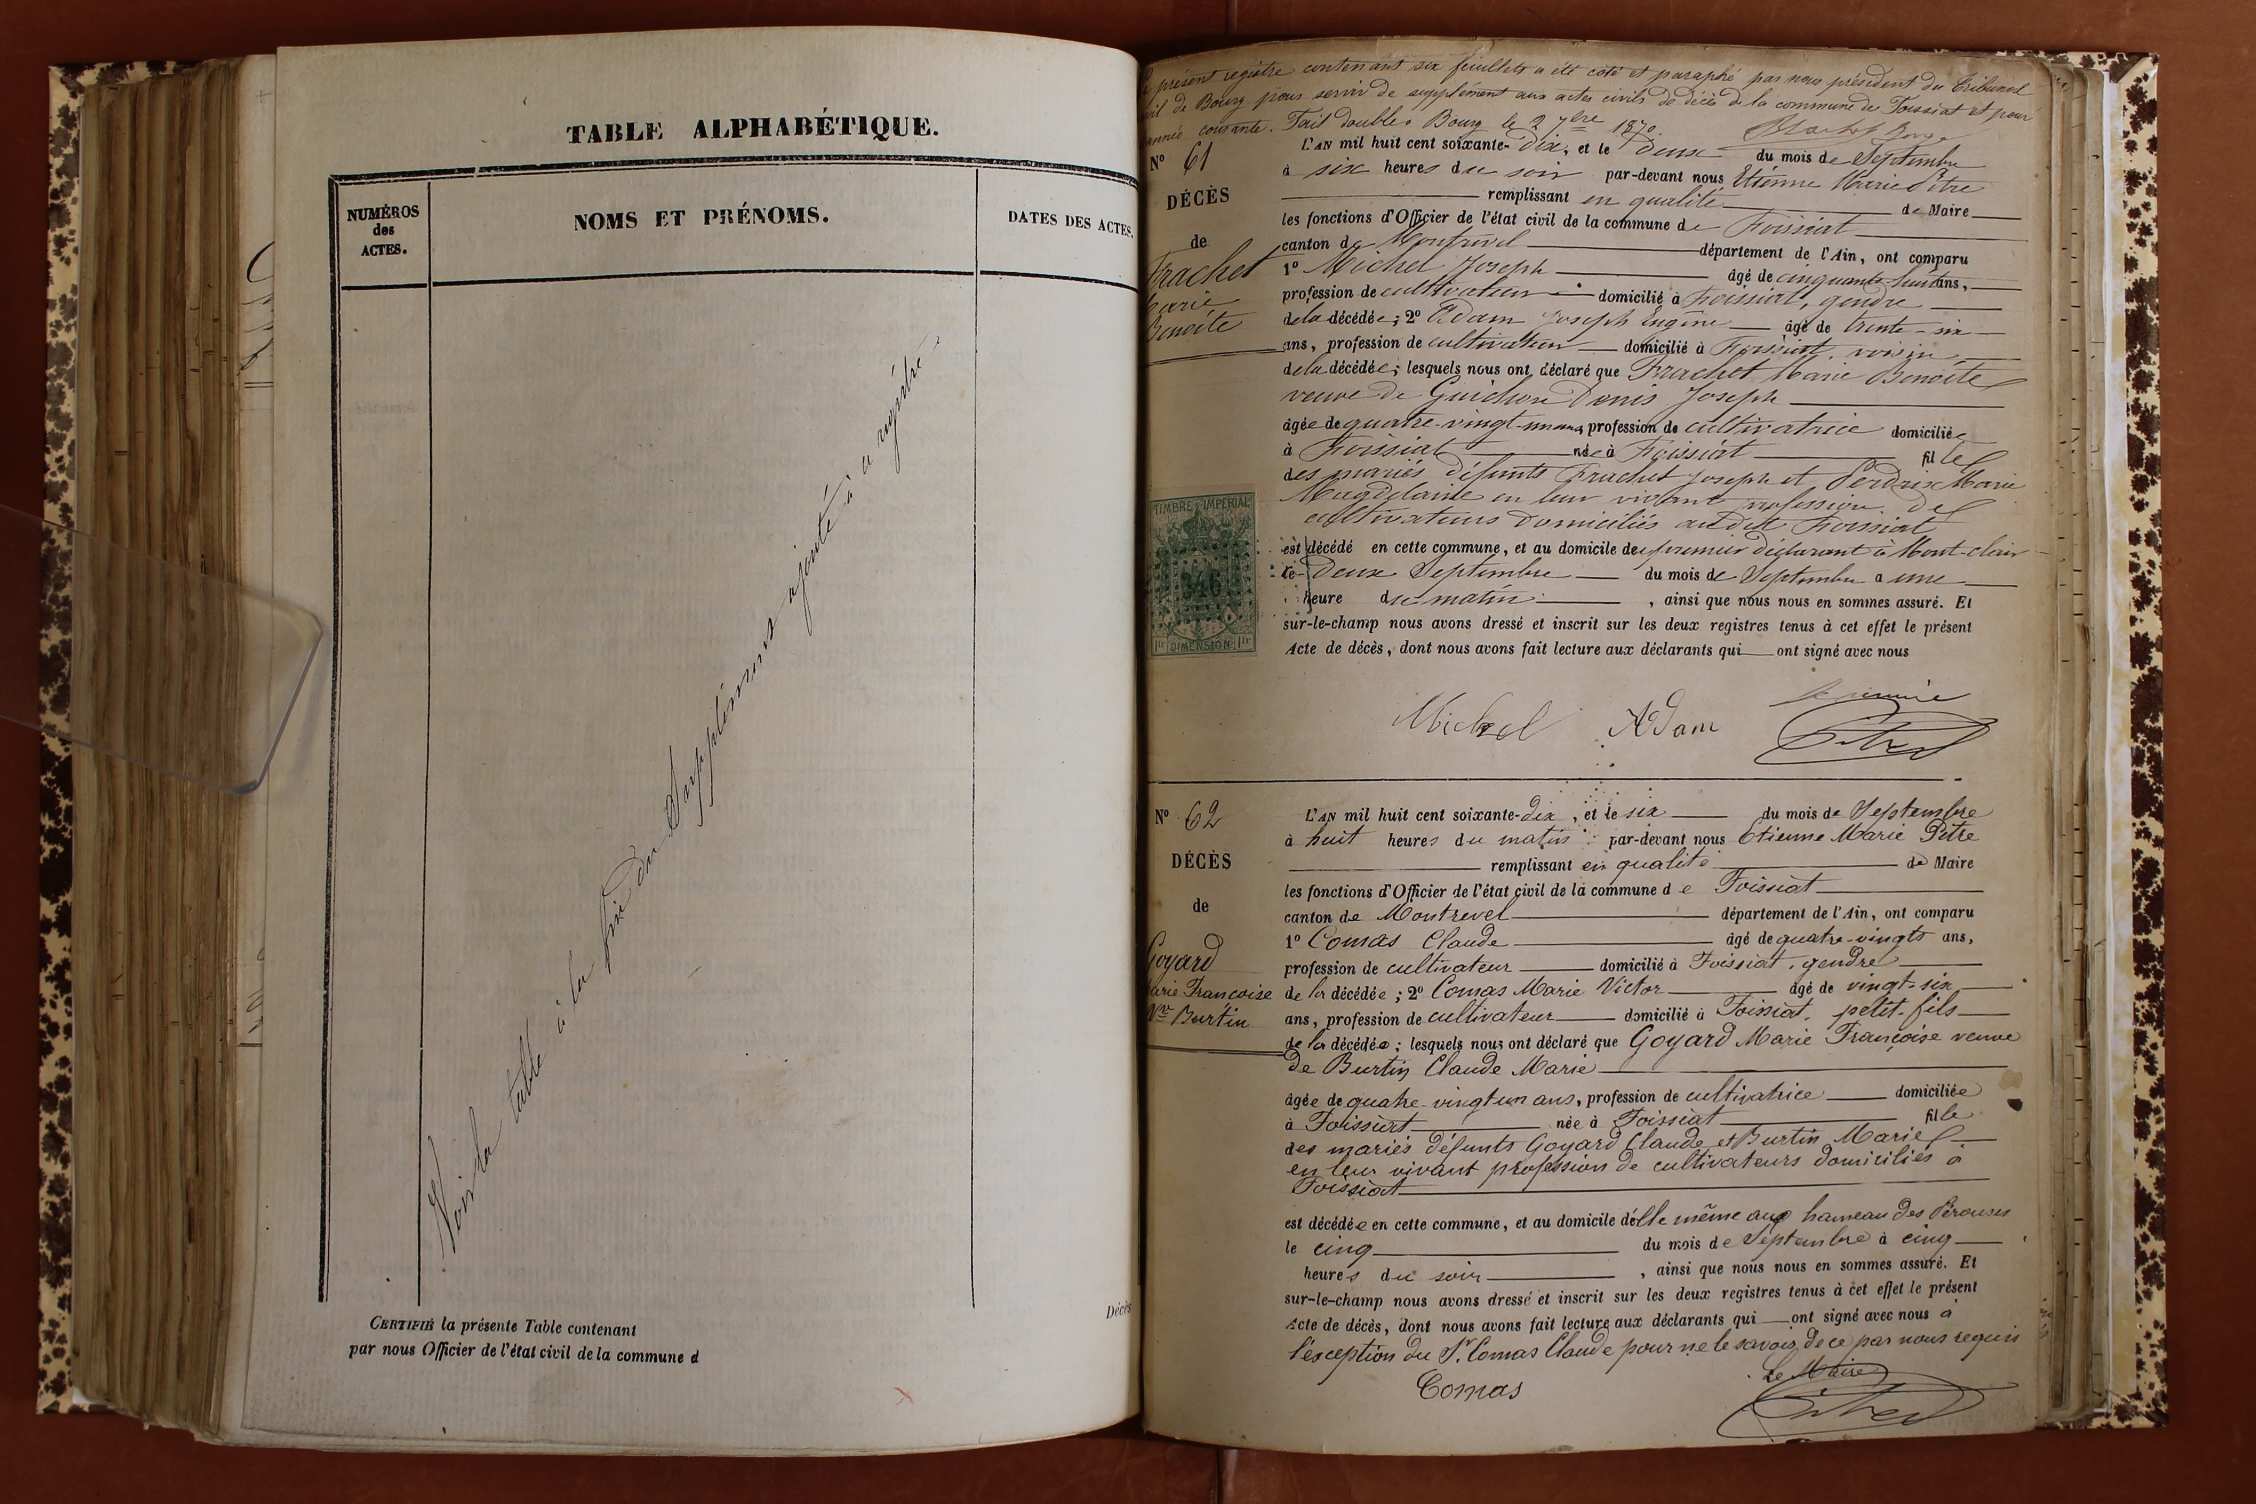 TABLE ALPHABÉTIQUE.
NUMÉROS
des
ACTES.
NOMS ET PRÉNOMS.
DATES DES ACTES.
Voir la table à la fin du Supplément ajouté à ce régistre
Décès
CERTIFIÉ la présente Table contenant
par nous Officier de l'état civil de la commune d
présent registre contenant six feuillets a été coté et paraphé par nous président du tribunal
de Bourg pour servir de supplément aux actes civils de décès de la commune de Foissiat et pour
année courante. Fait double à Bourg le 2 7bre 1870.
N° 61
DÉCÈS
de
Frachet
Marie
Benoite
L'AN mil huit cent soixante-dix, et le deux du mois de Septembre
à six heures du soir par-devant nous Etienne Marie Pitre
remplissant en qualité de Maire
les fonctions d'Officier de l'état civil de la commune de Foissiat
canton de Montrevel département de l'Ain, ont comparu
1° Michel Joseph âgé de cinquante-huit ans,
profession de cultivateur domicilié à Foissiat, gendre
de la décédée; 2° Adam Joseph Eugène âgé de trente-six
ans, profession de cultivateur domicilié à Foissiat, voisin
de la décédée; lesquels nous ont déclaré que Frachet Marie Benoite
veuve de Guichon Denis Joseph
âgée de quatre-vingt-un ans, profession de cultivatrice domiciliée
à Foissiat née à Foissiat fille
des mariés défunts Frachet Joseph et Perdrix Marie
Magdelaine en leur vivant profession de
cultivateurs domiciliés au dit Foissiat
est décédé en cette commune, et au domicile de premier déclarant à Mont-clair
le deux Septembre du mois de Septembre à une
heure du matin, ainsi que nous nous en sommes assuré. Et
sur-le-champ nous avons dressé et inscrit sur les deux registres tenus à cet effet le présent
Acte de décès, dont nous avons fait lecture aux déclarants qui ont signé avec nous
TIMBRE IMPERIAL
346
1fr DIMENSION 1fr
Michel Adam
N° 62
DÉCÈS
de
Goyard
Marie Françoise
Vve Burtin
L'AN mil huit cent soixante-dix, et le six du mois de Septembre
à huit heures du matin par-devant nous Etienne Marie Pitre
remplissant en qualité de Maire
les fonctions d'Officier de l'état civil de la commune de Foissiat
canton de Montrevel département de l'Ain, ont comparu
1° Comas Claude âgé de quatre-vingts ans,
profession de cultivateur domicilié à Foissiat, gendre
de la décédée; 2° Comas Marie Victor âgé de vingt-six
ans, profession de cultivateur domicilié à Foissiat, petit-fils
de la décédée; lesquels nous ont déclaré que Goyard Marie Françoise veuve
de Burtin Claude Marie
âgée de quatre-vingt un ans, profession de cultivatrice domiciliée
à Foissiat née à Foissiat fille
des mariés défunts Goyard Claude et Burtin Marie
en leur vivant profession de cultivateurs domiciliés à
Foissiat
est décédée en cette commune, et au domicile d'elle même au hameau des Pérouses
le cinq du mois de Septembre à cinq
heures du soir, ainsi que nous nous en sommes assuré. Et
sur-le-champ nous avons dressé et inscrit sur les deux registres tenus à cet effet le présent
Acte de décès, dont nous avons fait lecture aux déclarants qui ont signé avec nous à
l'exception du Sr. Comas Claude pour ne le savoir, de ce par nous requis
Le Maire
Comas